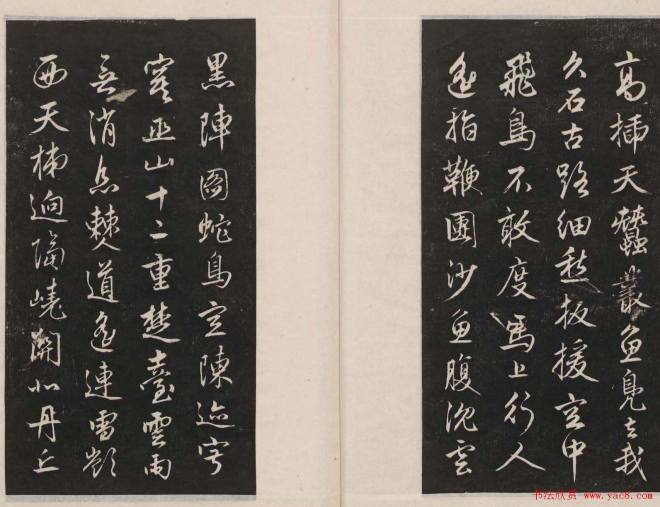 高插天蠶叢魚鳧去我
久石古路細愁扳援空中
飛鳥不敢度馬上行人
遥指鞭團沙魚腹沉雲
黑陣圖蛇鳥空陳迹寥
寞巫山十二重楚臺雲雨
無消息僰道遥連雪嶺
西天梯逈隔嶢關北丹丘
书法欣赏 www.yac8.com